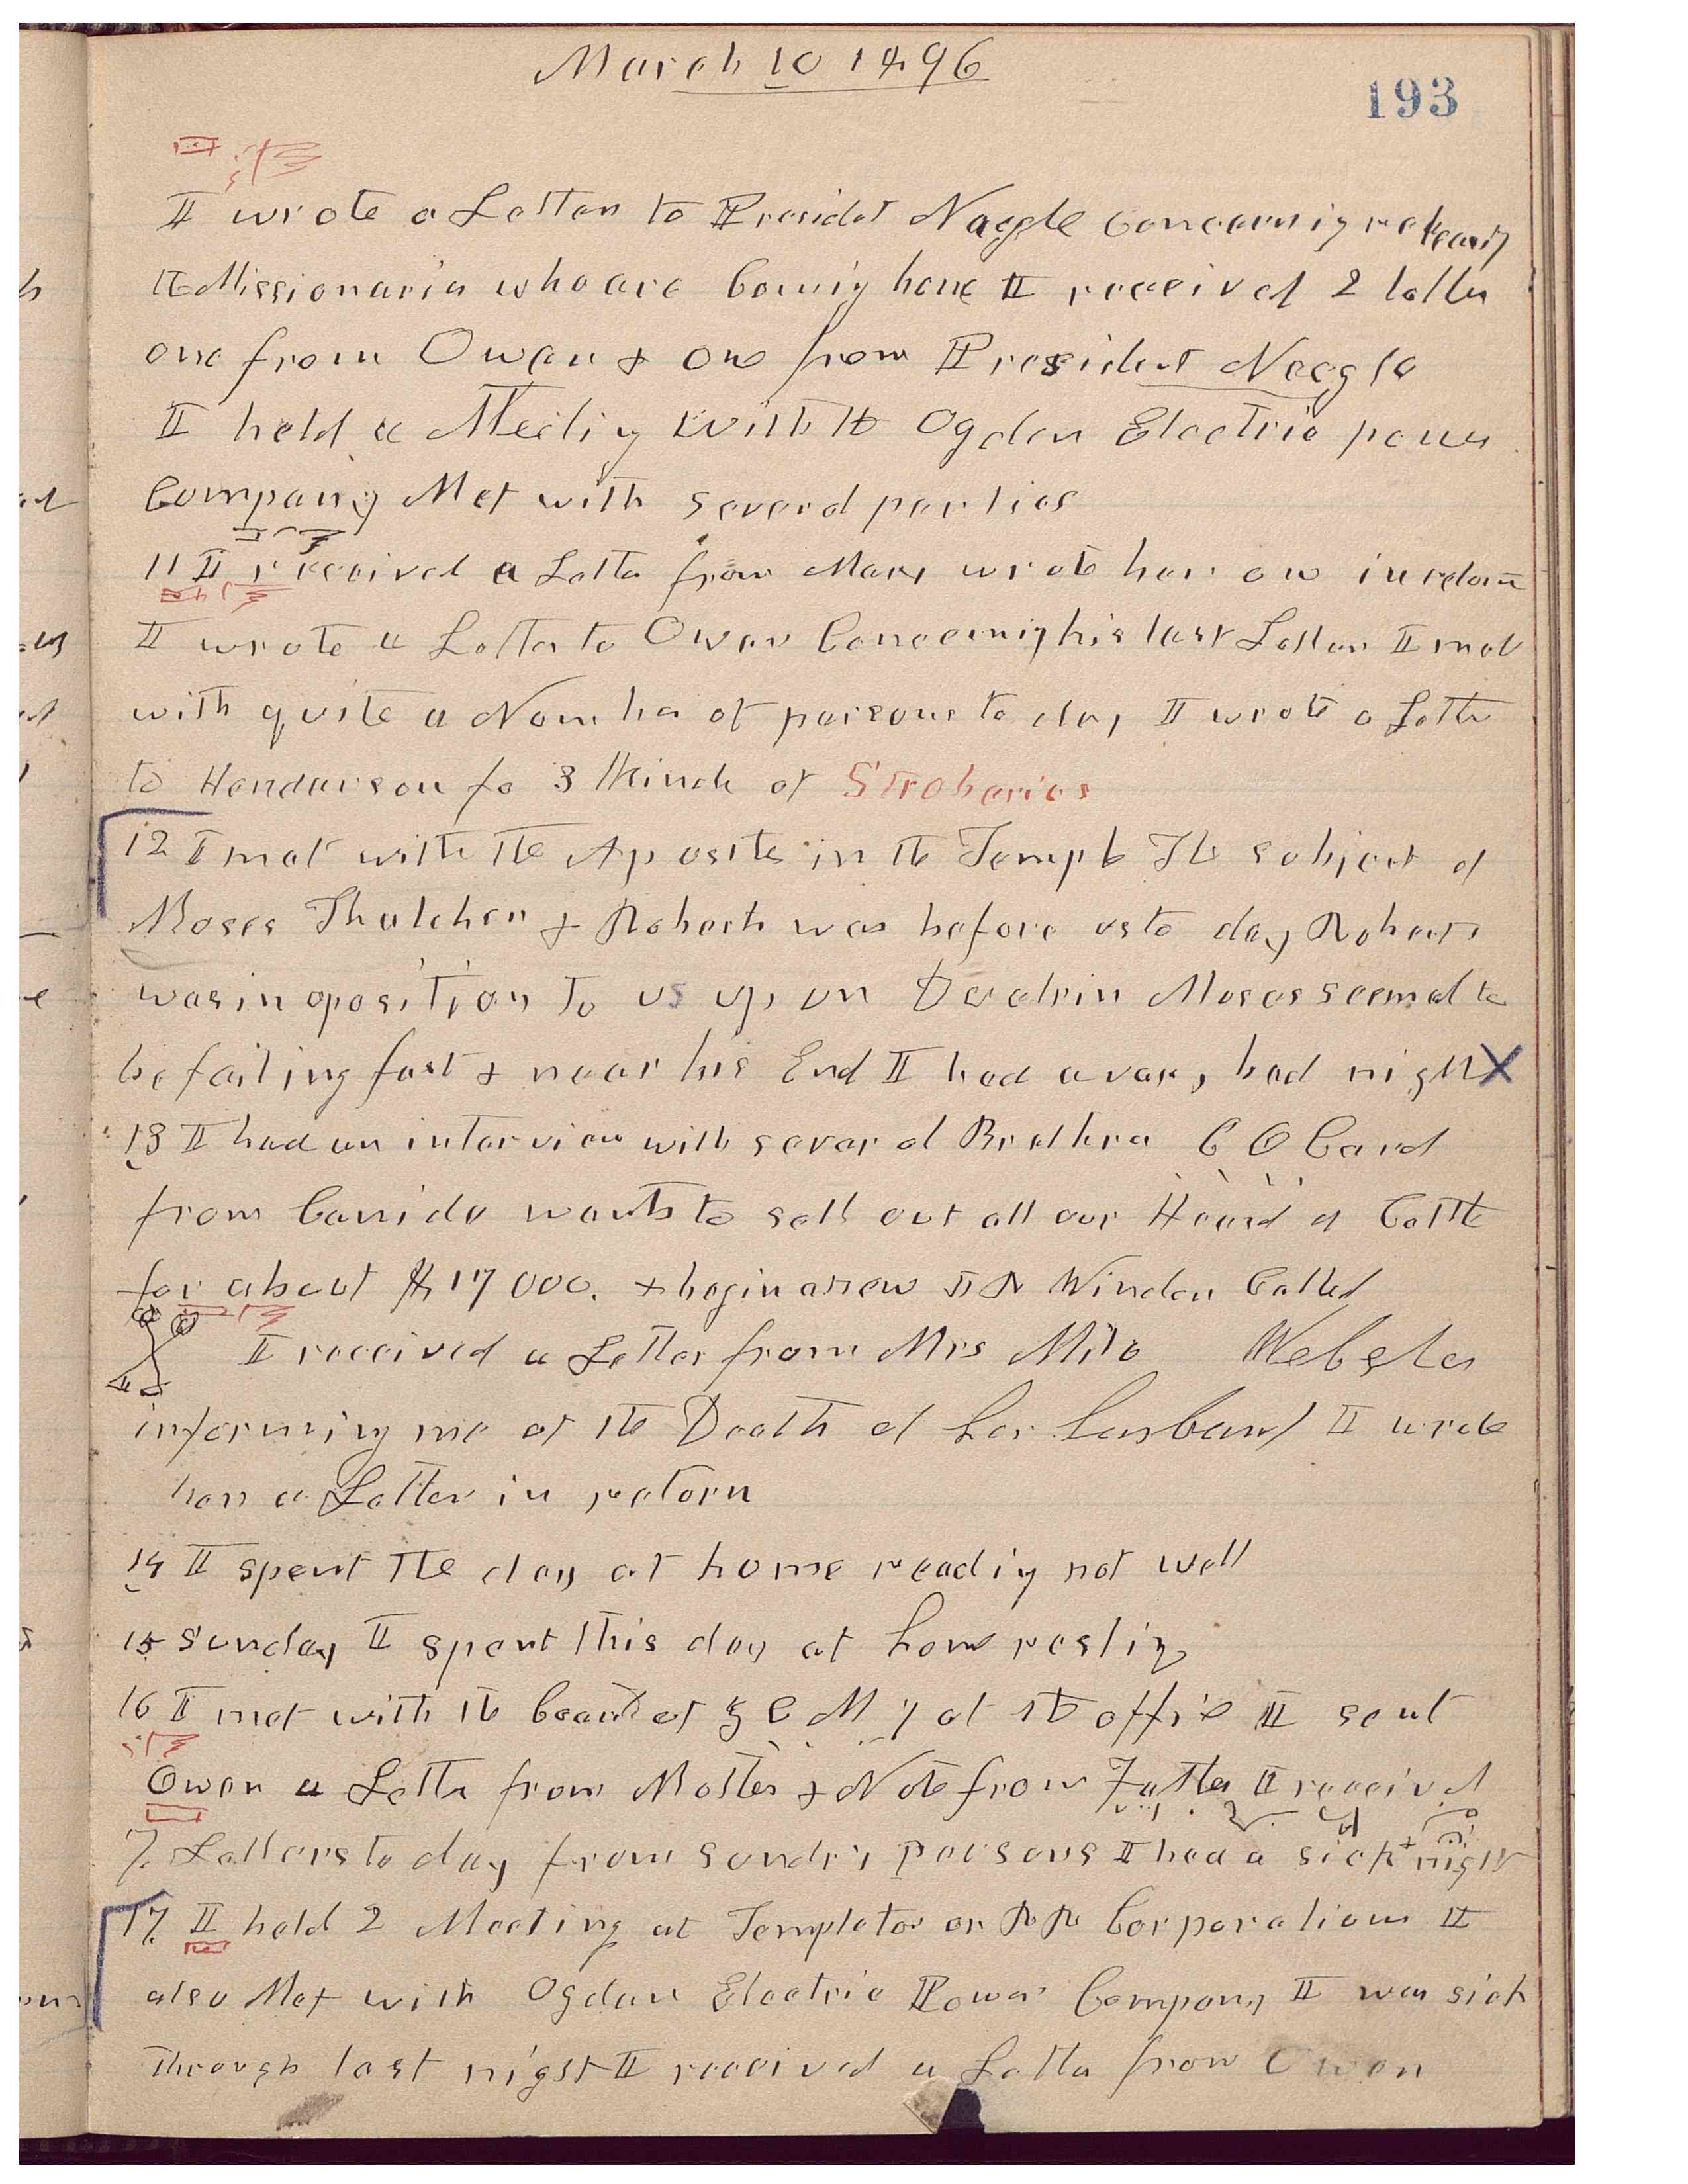 March 10 1896
193
I wrote a Letter to Presidet Naegle Concernig releasig
the Missionaries who are Comig home I received 2 letters
one from Owen & one from President Neegle
I held a Meetig With the Ogden Electric power
Company Met with several parties
11 I received a Letter from Mary wrote her one in return
I wrote a Letter to Owen Concernig his last Letter I met
with quite a Nomber of persons to day I wrote a Letter
to Henderson fo 3 Kinds of Stroberies
12 I met with the Apostles in the Temple The subject of
Moses Thatcher & Roberts was before us to day Roberts
was in oposition to us up on Doctrin Moses seemed to
be failing fast & near his End I had a vary bad night X
13 I had an interview with several Brethren C O Card
from Canida wants to sell out all our Heard of Cattle
for about $17000. & begin anew R Winder Called
I received a Letter from Mrs Milo Webster
informing me of the Death of her husband I wrote
her a Letter in return
14 I spent the day at home readig not well
15 Sunday I spent this day at home restig
16 I met with the board of Z C M I at the office I sent
Owen a Letter from Mother & Note from Father I received
7 Letters to day from sundry persons I had a sick night
17 I held 2 Meeting at Templeton on RR Corporations I
also Met with Ogden Electric Power Company I was sick
through last night I received a Letter from Owen